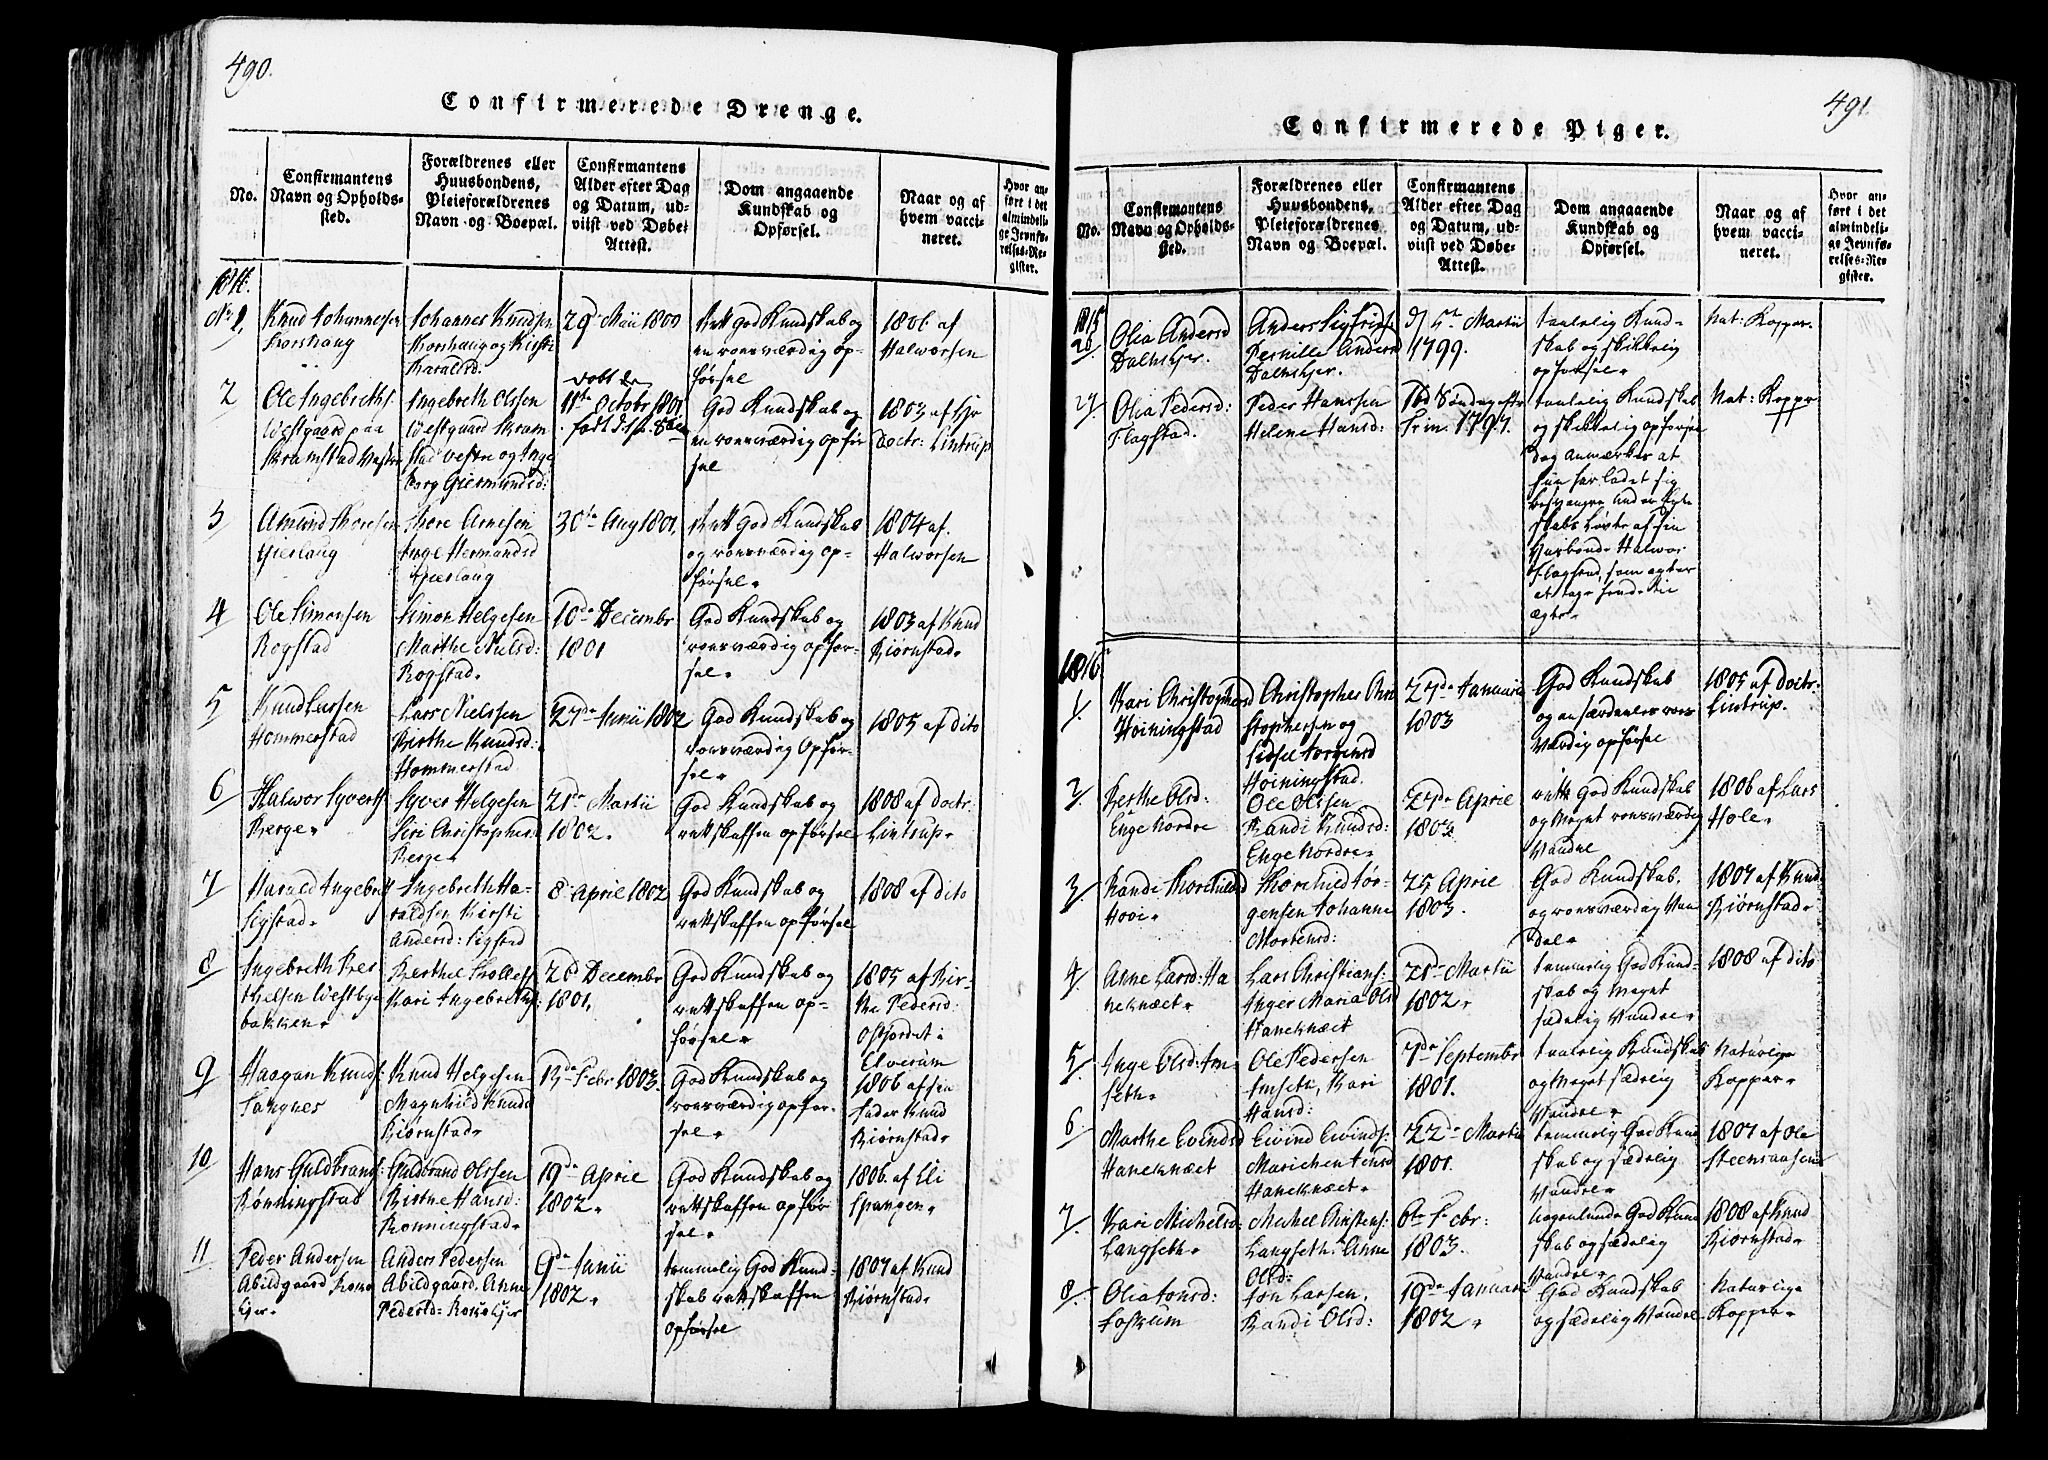 490.
Confirmerede Drenge.
No.
Confirmantens
Navn og Opholds-
sted.
Forældrenes eller
Huusbondens,
Pleieforældrenes
Navn og Boepæl.
Confirmantens
Alder efter Dag
og Datum, ud-
viist ved Døbe-
Attest.
Dom angaaende
Kundskab og
Opførsel.
Naar og af
hvem vacci-
neret.
Hvor an-
ført i det
almindeli-
ge Jevnfø-
relses-Re-
gister.
No 1,
Knud Johannessen
Korshaug
Johannes Knudsen
Korshaug og Kirsti
Haraldsd:
29 Maii 1800
Ret god Kundskab og
en roesværdig op-
førsel
1806 af
Halworsen
2
Ole Ingebreths:
Westgaard paa
Kramstad Vestre
Ingebreth Olssen
Westgaard Kram
stad vestre og Inge
borg Giermundsd:
Døbt de
11te Octobr 1801
født d.
God Kundskab og
en roesværdig opfør
sel
1803 af Hr
Doctr: Lintrup
3
Amund Thoresen
Gierlaug
Thore Arnesen
Inge Hermandsd
Gierlaug
30te Aug 1801,
Ret God Kundskab
og roesværdig op-
førsel.
1804 af.
Halworsen
4
Ole Simonsen
Rogstad
Simon Helgesen
Marthe Nielsd:
Rogstad.
10de Decembr
1801
God Kundskab og
roesværdig opfør-
sel.
1803 af Knud
Biørnstad.
5
Knud Larsen
Hommerstad
Lars Nielssen
Birthe Knudsd:
Hommerstad
27de Junii 1802
God Kundskab og
roesværdig Opfør-
sel.
1805 af dito
6
Halwor Syverts
Berge.
Syver Helgesen
Siri Christophersd
Berge.
21de Martii
1802.
God Kundskab og
retskaffen opførsel
1808 af Doctr.
Lintrup.
7
Harald Ingebreths
Sigstad.
Ingebreth Ha-
raldsen Kirsti
Andersd: Sigstad
8 Aprile 1802
God Kundskab og
retskaffen opførsel
1808 af dito
8
Ingebreth Ber
thelsen Westbye
bakken.
Berthel Trolles
Kari Ingebrethsd:
26 Decembr
1801,
God Kundskab og
retskaffen op-
førsel.
1805 af Bir-
the Pedersd:
i
Elverum
9
Haagan Knuds:
Tangnes
Knud Helgesen
Magnhild Knudsd
Biørnstad.
13de Febr 1803.
God Kundskab og
roesværdig opfør-
sel.
1806 af sin
Fader Knud
Biørnstad.
10
Hans Guldbrands:
Rønningstad
Guldbrand Olssen
Birthe Hansd:
Ronningstad.
19de Aprile
1802.
God Kundskab og
retskaffen opfør
sel.
1806. af Eli
Spangen.
11
Peder Andersen
Abildgaard
Anders Pedersen
Abildgaard. Anne
Pedersd:
9de Junii
1802.
temmelig God Kund-
skab retskaffen
Opførsel
1807 af Knud
Biørnstad.
491.
Confirmerede Piger.
No.
Confirmantens
Navn og Opholds-
sted.
Forældrenes eller
Huusbondens,
Pleieforældrenes
Navn og Boepæl.
Confirmantens
Alder efter Dag
og Datum, ud-
viist ved Døbe-
Attest.
Dom angaaende
Kundskab og
Opførsel.
Naar og af
hvem vacci-
neret.
Hvor an-
ført i det
almindeli-
ge Jevnfø-
relses-Re-
gister.
1815
26.
Olia Andersd
Dalneiger.
Pernille Andersd
Dalneiger.
d/ 5te Martii
1799.
taalelig Kund-
skab og skikkelig
opførsel.
Nat: Kopper.
27
Olia Pedersd:
Flagstad.
Peder Hanssen
Helene Hansd:
Trin. 1797.
taalelig Kundskab
og skikkelig opførsel
Dog anmærkes at
hun har ladet sig
besvangre under Egte
skabs Løvte af sin
Huusbonde Halwor
Flagstad, som agter
at tage hende til
ægte.
Nat: Kopper
1816
1.
Kari Christophersd
Høiningstad
Christopher Chri
stophersen og
Sidsel Jørgensd
Høiningstad.
27de Januarii
1803
God Kundskab
og en særdeeles roes
værdig opførsel
1805 af Doctr:
Lintrup.
2.
Berthe Olsd:
Enge Nordre
Ole Olssen
Randi Knudsd:
Enge Nordre.
23de Aprile
1802.
ret God Kundskab
og Meget roesværdig
Vandel
1806 af Lars
Hole.
3.
Randi Thorchildsd
Hoei.
Thorchild Jør-
gensen Johanne
Mortensd:
25 Aprile
1803.
God Kundskab.
og roesværdig Van
del.
1807 af Knud
Biørnstad.
4.
Anne Larsd: Ha
neknæet.
Lars Christians:
Inger Maria Olsd
Haneknæet
21de Martii
1802.
temmelig God Kund-
skab og Meget
sædelig Vandel.
1808 af dito
5.
Inge Olsd: Im
seth.
Ole Pedersen
Imseth, Kari
Hansd:
7de Septembr
1801.
taalelig Kundskab
og Meget sædelig
Vandel.
Naturlige
Kopper.
6.
Marthe Evindsd
Haneknæet
Eivind Eivinds:
Marichen Jensd
Haneknæet.
22de Martii
1801.
temmelig God Kund
skab og sædelig
Vandel.
1807 af Ole
Steensaasen
7.
Kari Michelsd:
Langseth.
Michel Christens:
Langseth. Anne
Olsd:
6te Febr:
1803.
nogenlunde God Kund
skab og sædelig
Vandel.
1808 af Knud
Biørnstad.
8.
Olia Jonsd:
Foskum
Jon Larsen.
Randi Olsd:
19de Januarii
1802.
God Kundskab
og sædelig Vandel
Naturlige
Kopper.